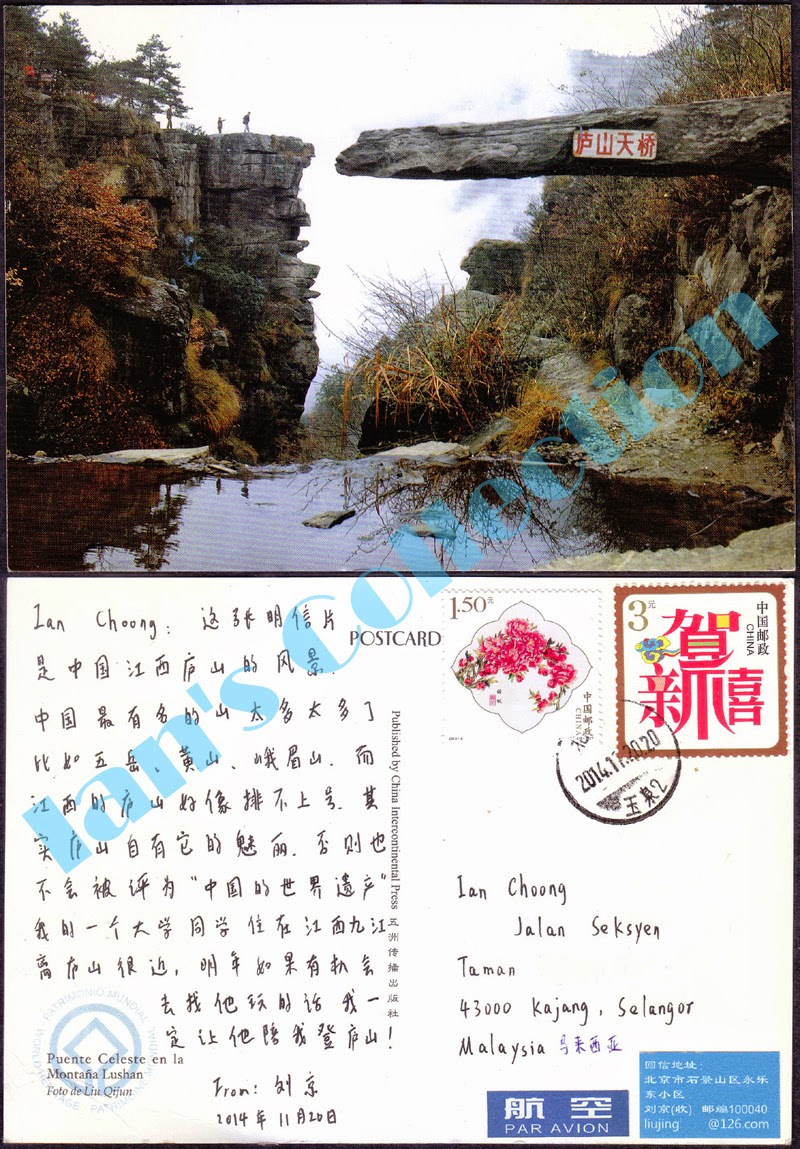 庐山天桥
Ian's Connection
Ian Choong: 这张明信片
是中国江西庐山的风景.
中国最有名的山太多太多了
比如五岳、黄山、峨眉山. 而
江西的庐山好像排不上号. 其
实庐山自有它的魅丽. 否则也
不会被评为“中国的世界遗产”
我的一个大学同学住在江西九江
离庐山很近, 明年如果有机会
去找他玩的话 我一
定让他陪我登庐山!
From: 刘京
2014年11月20日
PATRIMONIO MUNDIAL
WORLD HERITAGE
PATRIMOINE MONDIAL
Puente Celeste en la
Montaña Lushan
Foto de Liu Qijun
POSTCARD
Published by China Intercontinental Press 五洲传播出版社
1.50元
中国邮政
CHINA
3元
中国邮政
CHINA
贺新禧
2014.11.20 20
玉泉2
Ian Choong
Jalan Seksyen
Taman
43000 Kajang, Selangor
Malaysia 马来西亚
航空
PAR AVION
回信地址:
北京市石景山区永乐
东小区
刘京(收) 邮编100040
liujing @126.com